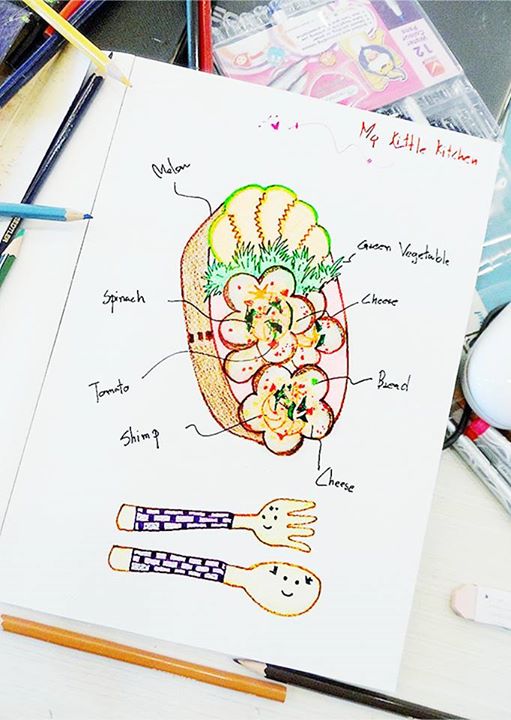 12
Water
Colour
Pens
My Little Kitchen
Melon
Green Vegetable
Spinach
Cheese
Tomato
Bread
Shimp
Cheese